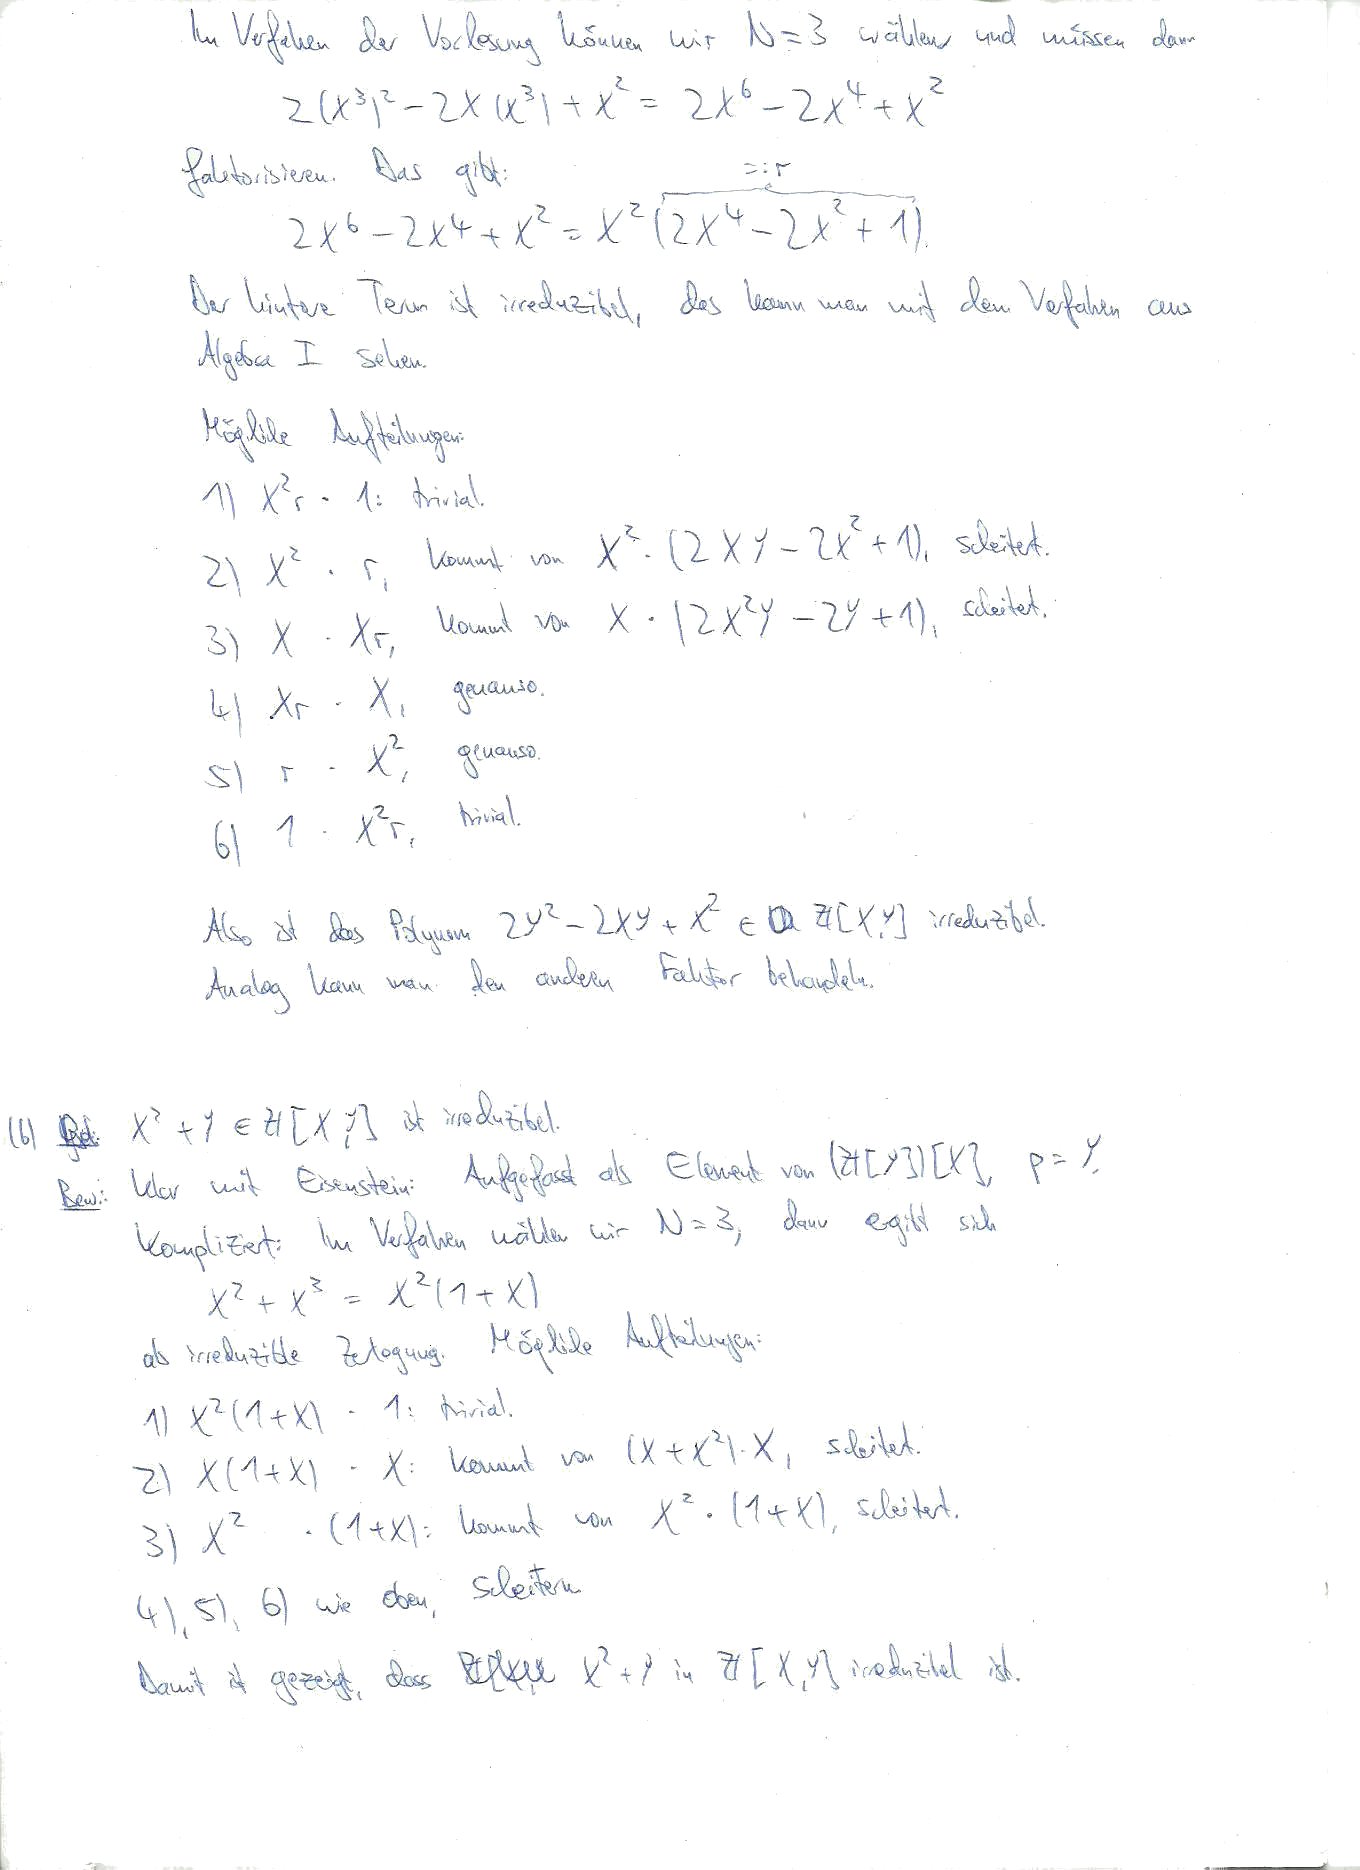 Im Verfahren der Vorlesung können wir N=3 wählen und müssen dann
2(X³)² − 2X(X³) + X² = 2X⁶ − 2X⁴ + X²
faktorisieren. Das gibt:
=: r
2X⁶ − 2X⁴ + X² = X²(2X⁴ − 2X² + 1).
Der hintere Term ist irreduzibel, das kann man mit dem Verfahren aus
Algebra I sehen.
Mögliche Aufteilungen:
1) X²r · 1: trivial.
2) X² · r, kommt von X² · (2XY − 2X² + 1), scheitert.
3) X · Xr, kommt von X · (2X²Y − 2Y + 1), scheitert.
4) Xr · X, genauso.
5) r · X², genauso.
6) 1 · X²r, trivial.
Also ist das Polynom 2Y² − 2XY + X² ∈ ℤ[X,Y] irreduzibel.
Analog kann man den andern Faktor behandeln.
(b) X² + Y ∈ ℤ[X,Y] ist irreduzibel.
Bew.: Klar mit Eisenstein: Aufgefasst als Element von (ℤ[Y])[X], p = Y.
Kompliziert: Im Verfahren wählen wir N=3, dann ergibt sich
X² + X³ = X²(1+X)
als irreduzible Zerlegung. Mögliche Aufteilungen:
1) X²(1+X) · 1: trivial.
2) X(1+X) · X: kommt von (X+X²)·X, scheitert.
3) X² · (1+X): kommt von X² · (1+X), scheitert.
4), 5), 6) wie oben, scheitern
Damit ist gezeigt, dass X² + Y in ℤ[X,Y] irreduzibel ist.